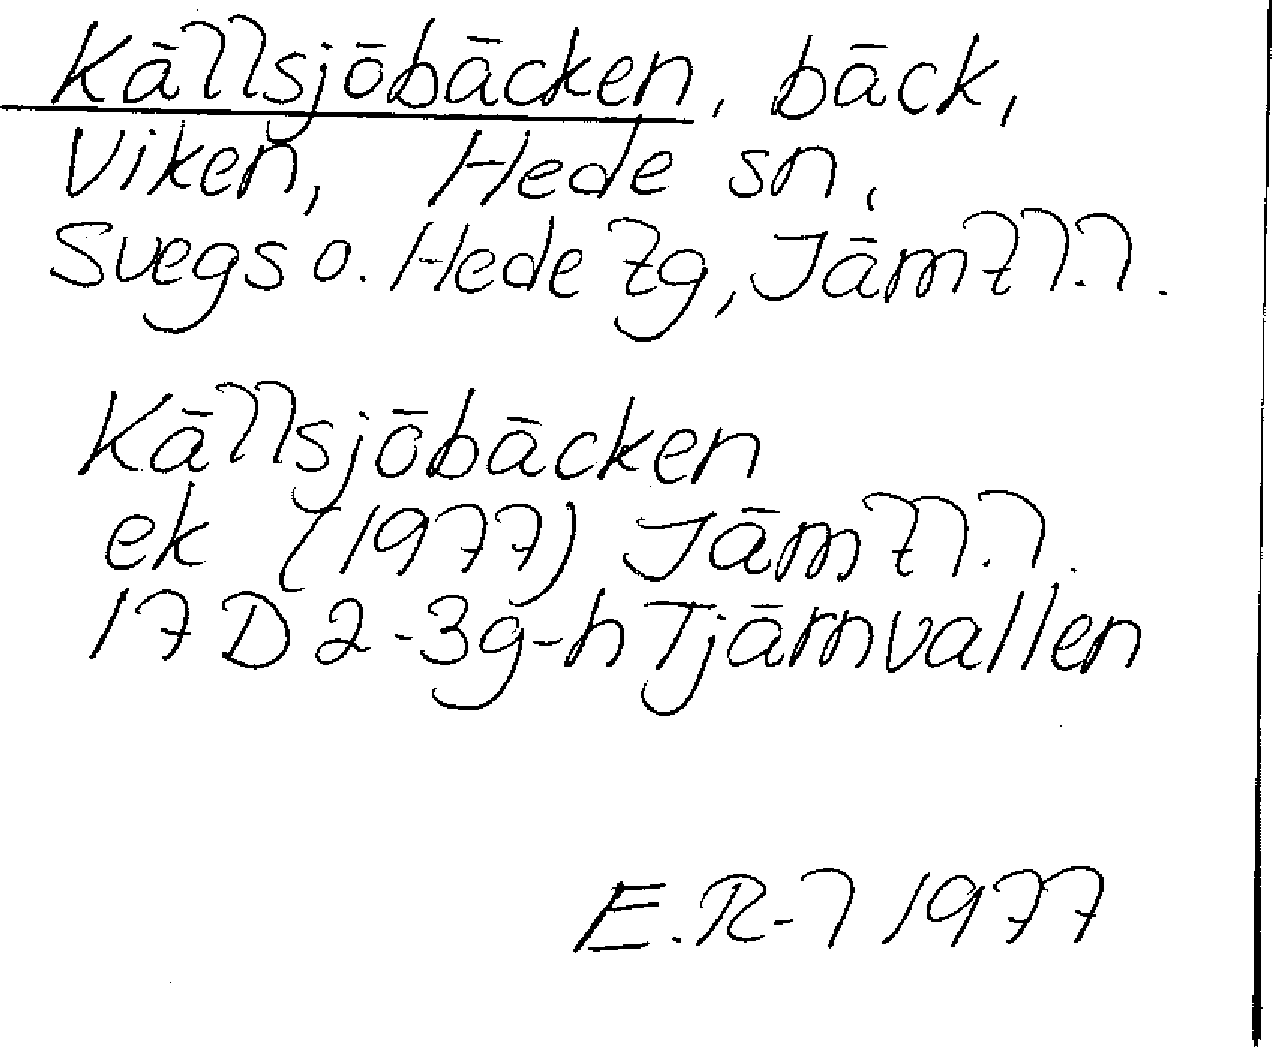 Källsjöbäcken, bäck,
Viken, Hede sn,
Svegs o. Hede tg, Jämtl.l.
Källsjöbäcken
ek (1977) Jämtl.l.
17D 2-3g-h Tjärnvallen
E.R-l 1977